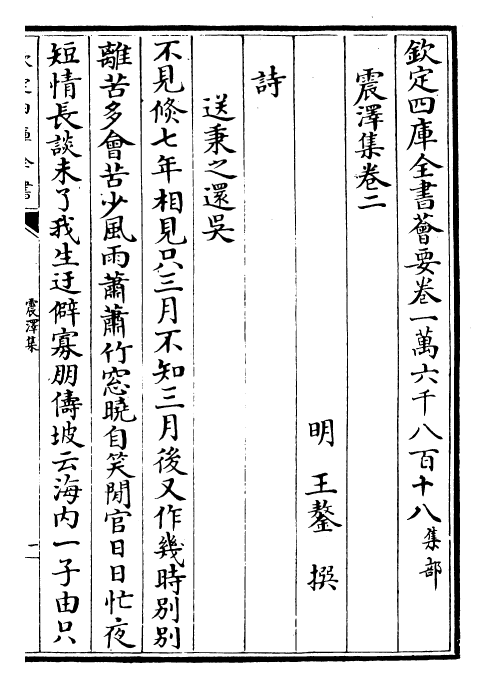 欽定四庫全書薈要卷一萬六千八百十八集部
震澤集卷二
明 王鏊 撰
詩
送秉之還吳
不見倐七年相見只三月不知三月後又作幾時别别
離苦多會苦少風雨蕭蕭竹窓曉自笑閒官日日忙夜
短情長談未了我生迂僻寡朋儔坡云海内一子由只
震澤集
一